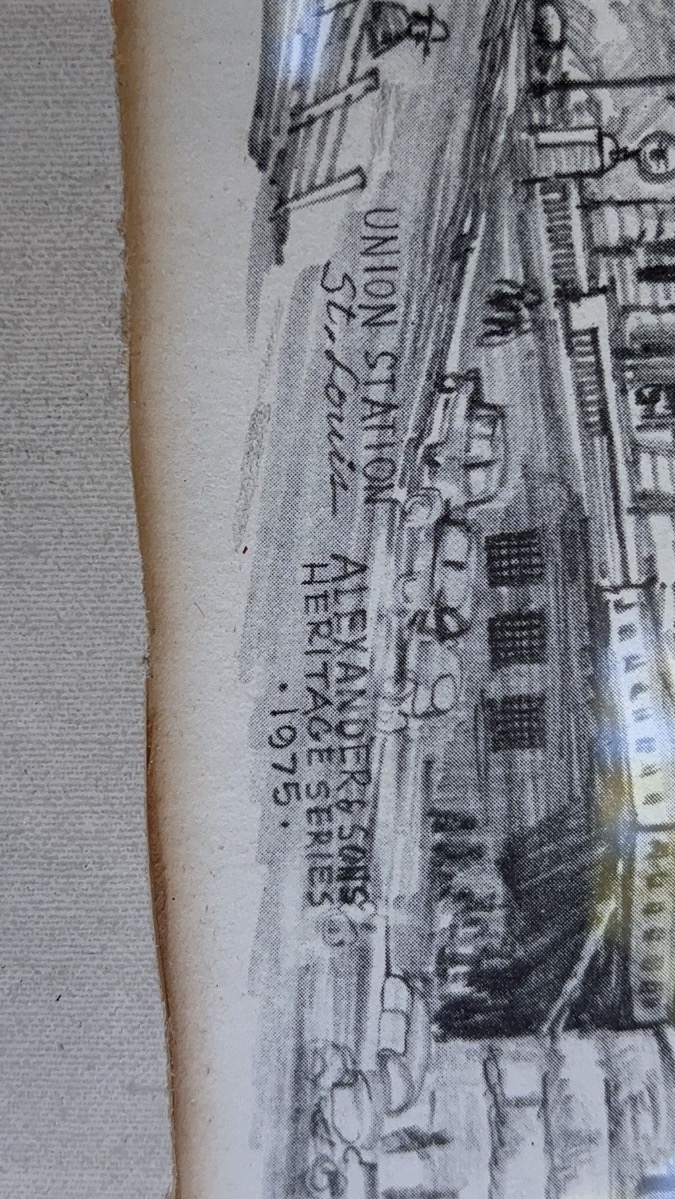 UNION STATION
St. Louis
ALEXANDER & SONS
HERITAGE SERIES
· 1975 ·